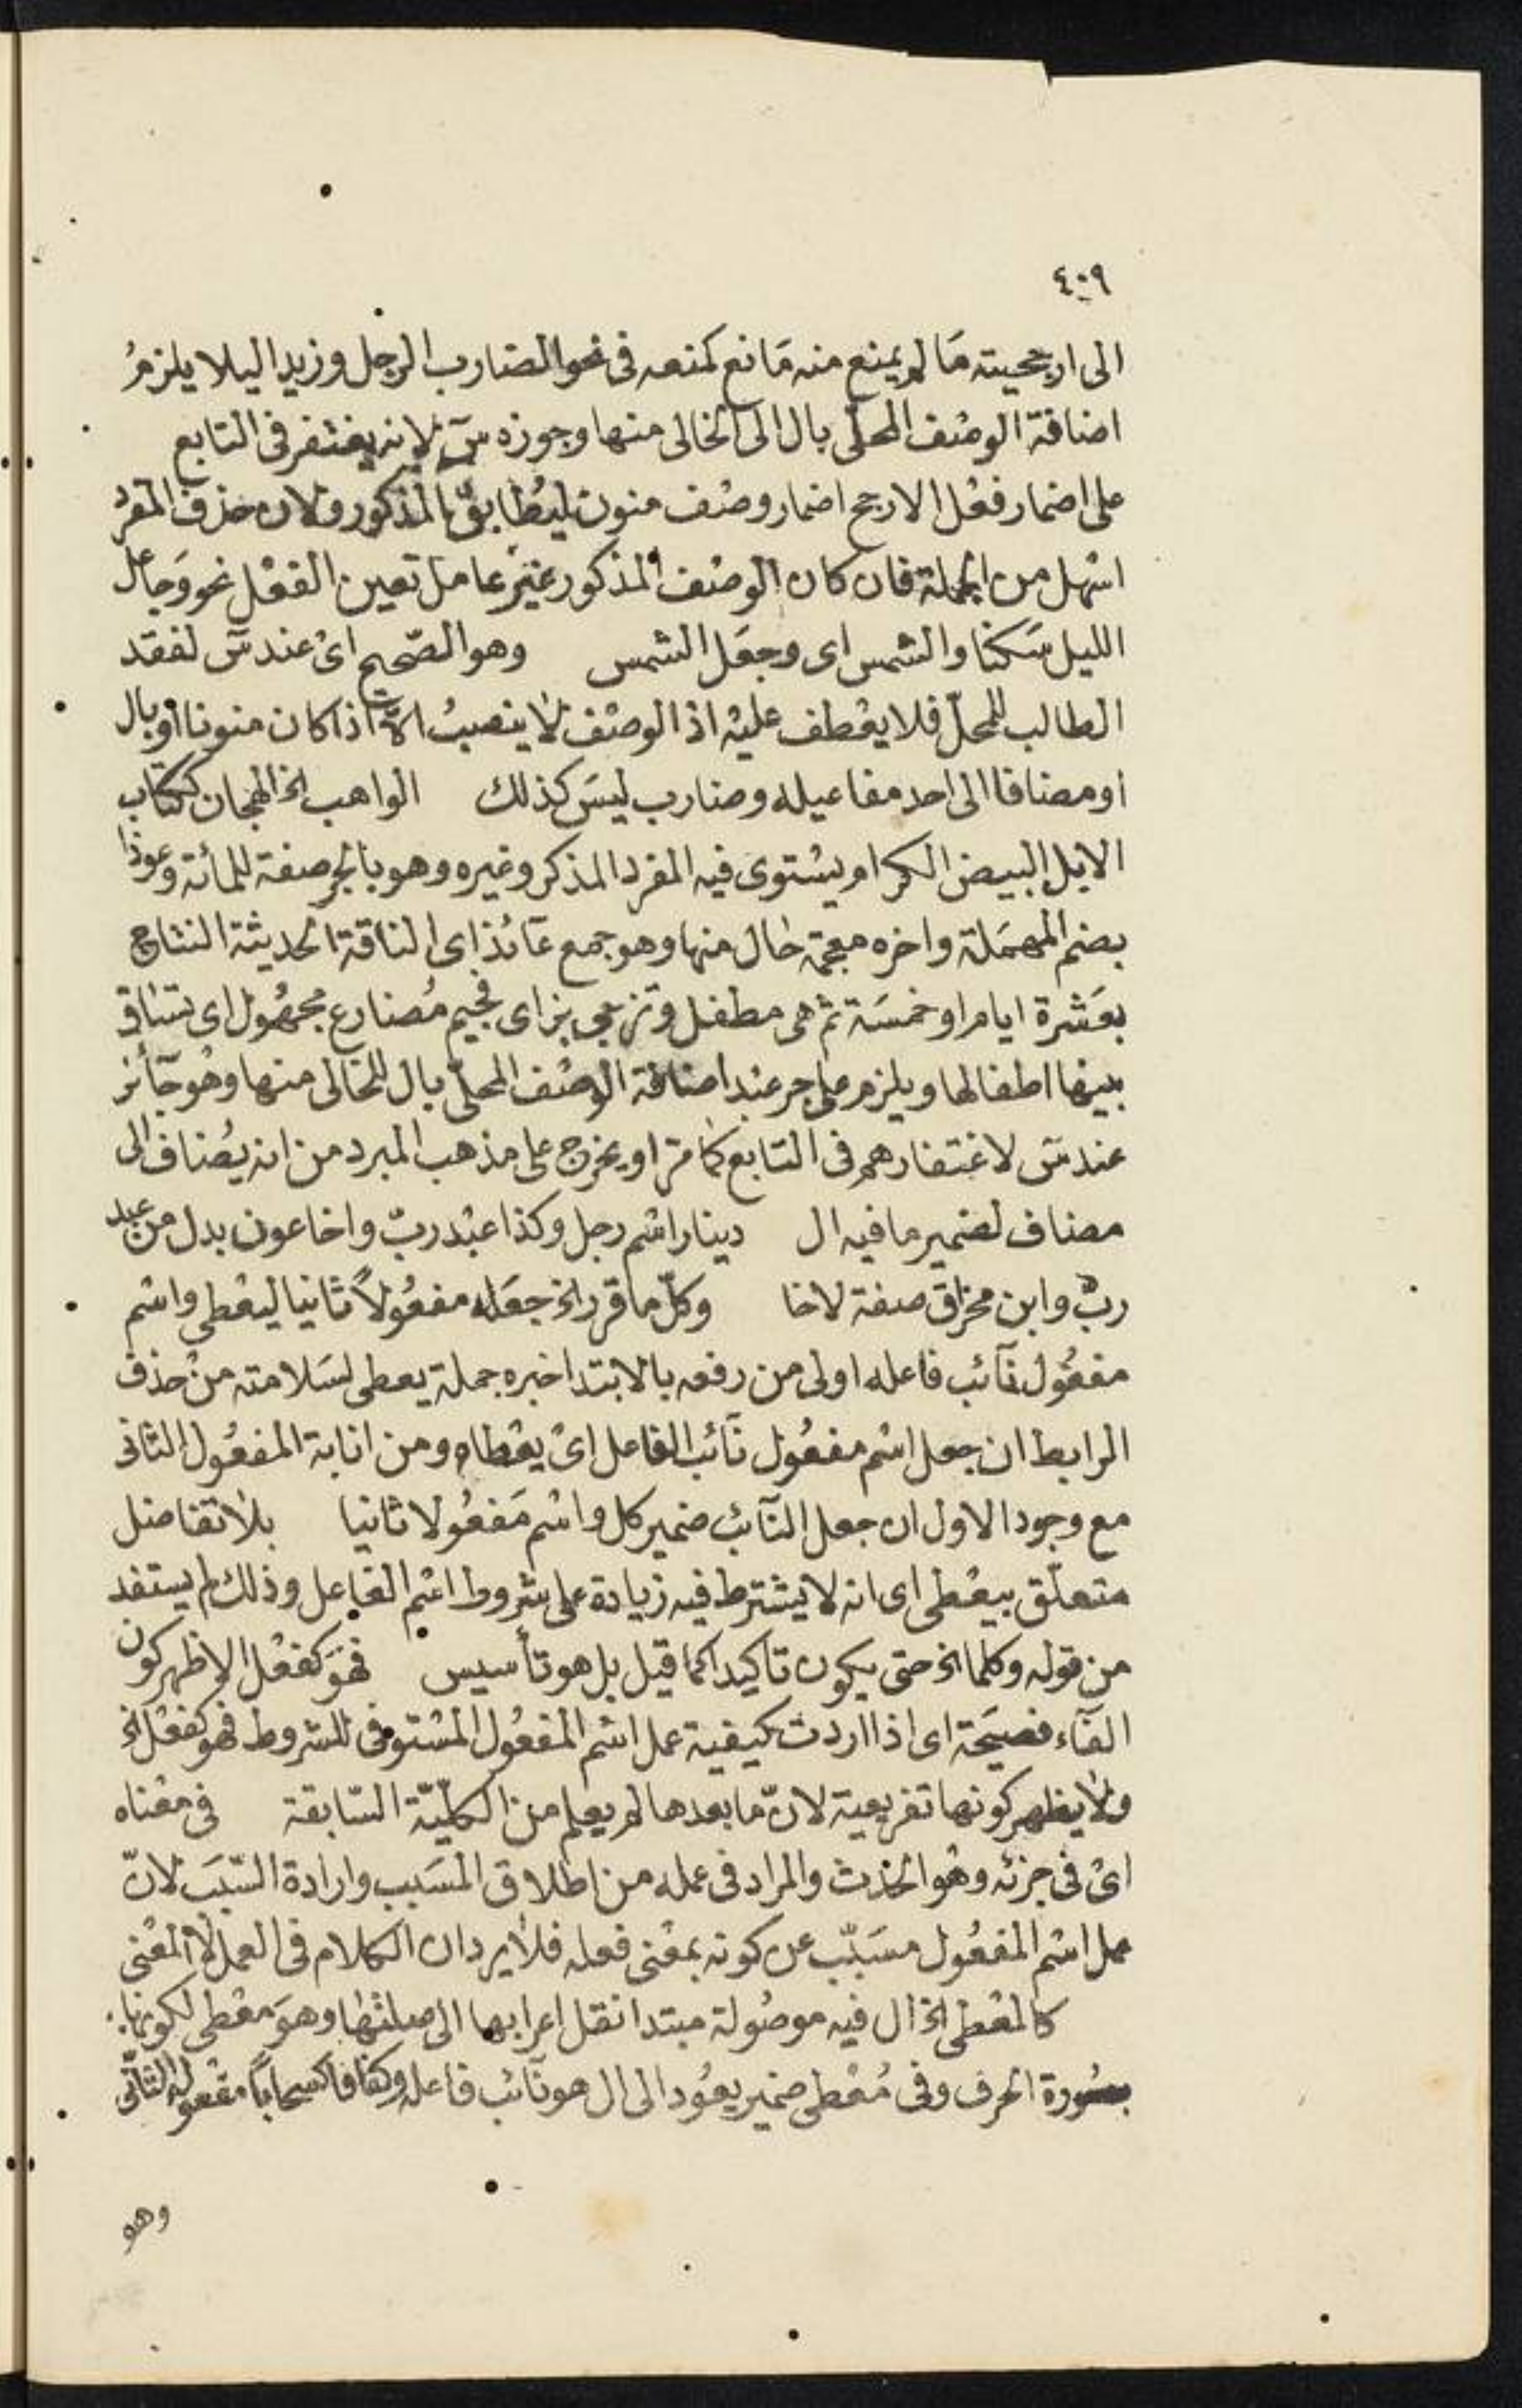 ٤٠٩
الى ارجحيته مَا لم يمنع منه مَانع كمنعه فى نحو الضارب الرجل وزيد اليلا يلزمُ
اضافة الوصْف المحلّى بال الى الخالى منها وجوزه سٓ لانه يغتفر فى التابع
على اضمار فعْل الارجح اضمار وصْف منون ليُطَابقَ المذكور ولان حذف المفرد
اسْهل من الجملة فان كان الوصْف المذكور غيْر عامل تعين الفعْل نحو وَجاعل
الليل سَكنا والشمس اى وجعَل الشمس وهو الصّحيح اىْ عند سٓ لفقد
الطالب للمحلّ فلا يعْطف عليْه اذ الوصْف لا ينصبُ الا اذا كان منونا او بال
او مضافا الى احد مفاعيله وضارب ليسَ كذلك الواهب الخ الهجان ككتاب
الابل البيض الكرام يسْتوى فيه المفرد المذكر وغيره وهو بالجر صفة للمائة وعوذا
بضم المهمَلة واخره معجمة حَال منها وهو جمع عَائذ اى الناقة الحديثة النتاج
بعَشرة ايام او خمسَة ثم هى مطفل وتزجى بزاى فجيم مُضارع مجهُول اى تساق
بينها اطفالها ويلزم على جر عبد اضافة الوصْف المحلّى بال للخالى منها وهُو جَائز
عند سٓ لاغتفارهم فى التابع كمَا مرّ او يخرج على مذهب المبرد من انه يُضاف الى
مضاف لضمير ما فيه ال دينار اسْم رجل وكذا عبْد ربّ واخا عون بدل من عبد
ربّ وابن مخراق صفة لاخا وكلّ ما قرر الخ جعَله مفعُولاً ثانيا ليعْطى واسْم
مفعُول نَائب فاعله اولى من رفعه بالابتدا خبره جملة يعطى لسَلامته منْ حذف
الرابط ان جعل اسْم مفعُول نَائب الفاعل اىْ يعْطاه ومن انابة المفعُول الثانى
مع وجود الاول ان جعل النآئب ضمير كل واسْم مَفعُولا ثانيا بلا تفاضل
متعلّق بيعْطى اى انه لا يشْترط فيه زيادة على شروط اسْم الفاعل وذلك لم يستفد
من قوله وكلما الخ حتى يكون تاكيدا كما قيل بل هو تأسيس فهوَ كفعْل الاظهر كون
الفآء فصيحَة اى اذا اردت كيفية عمل اسْم المفعُول المسْتوفى للشروط فهو كفعْل الخ
ولا يظهر كونها تفريعية لانّ ما بعدها لم يعلم من الكليّة السّابقة فى معْناه
اىْ فى جزئه وهُو الحدث والمراد فى عمله من اطْلاق المسَبب وارادة السّبَب لانّ
عمل اسْم المفعُول مسَبّب عن كونه بمعْنى فعله فلا يرد ان الكلام فى العمل لا المعْنى
كالمعْطى الخ ال فيه موصُولة مبتدا نقل اعرابها الى صلتهَا وهوَ معْطى لكونها
بصُورة الحرف وفى مُعْطى ضمير يعُود الى ال هو نآئب فاعله وكفافا كسحَاباً مفعوله الثانى
وهو